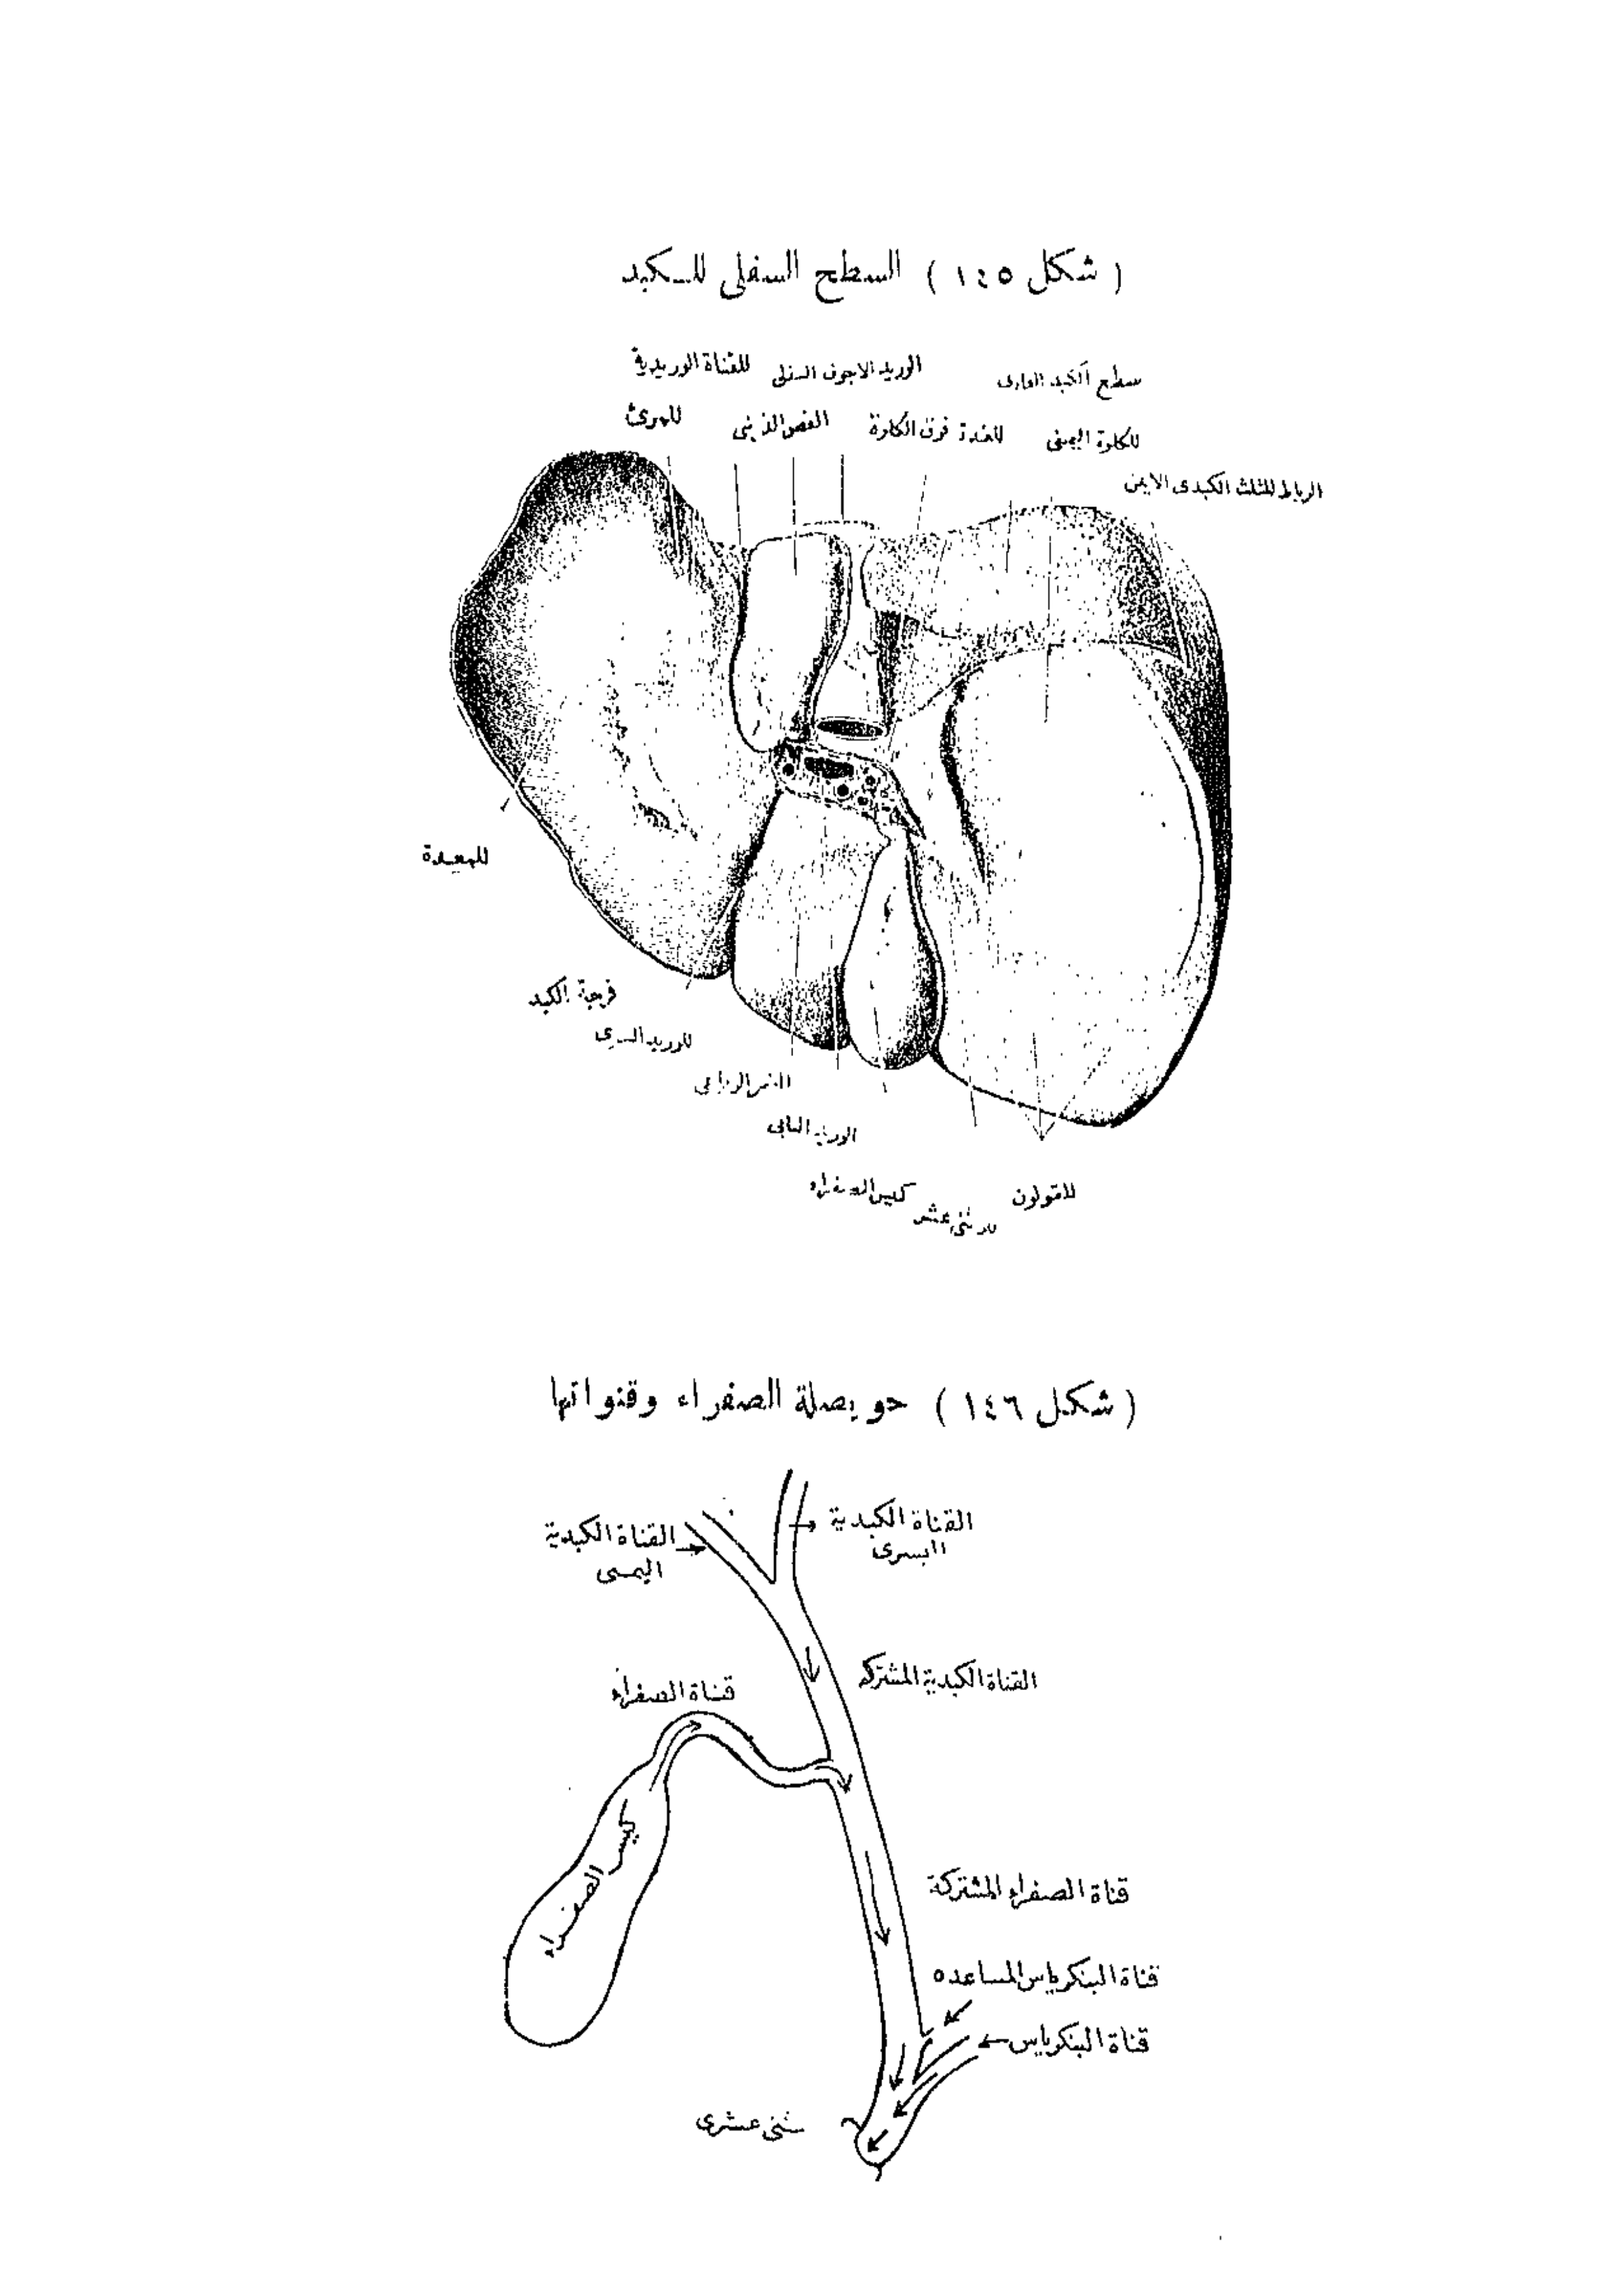 ( شكل ١٤٥ ) السطح السفلى للكبد
سطح الكبد العارى
الوريد الاجوف السفلى
للقناة الوريدية
للكلوة اليمنى
للغدة فوق الكلوة
الفص الذينى
للمرئ
الرباط المثلث الكبدى الايمن
للمعدة
فرجة الكبد
للوريد السرى
الوريد البابى
كيس الصفراء
للقولون
( شكل ١٤٦ ) حويصلة الصفراء وقنواتها
القناة الكبدية
اليسرى
القناة الكبدية
اليمنى
القناة الكبدية المشتركه
قناة الصفراء
كيس الصفراء
قناة الصفراء المشتركة
قناة البنكرياس المساعده
قناة البنكرياس
ثنى عشرى